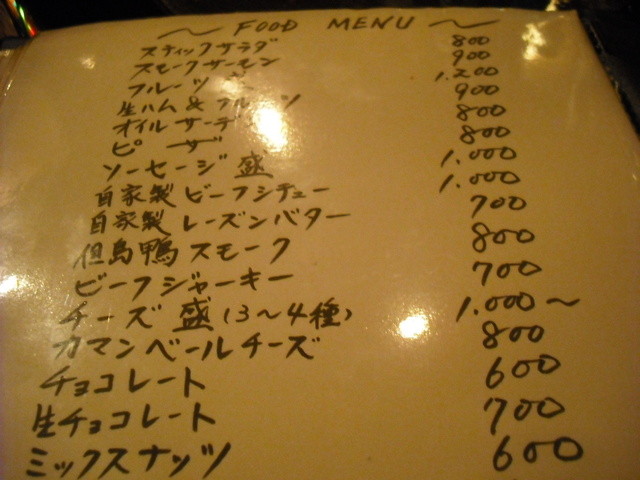 ～ FOOD MENU ～
スティックサラダ 800
スモークサーモン 900
フルーツ 1.200
生ハム & 900
オイルサーディ 800
ピザ 800
ソーセージ盛 1.000
自家製ビーフシチュー 1.000
自家製レーズンバター 700
但島鴨スモーク 800
ビーフジャーキー 700
チーズ盛(3～4種) 1.000～
カマンベールチーズ 800
チョコレート 600
生チョコレート 700
ミックスナッツ 600